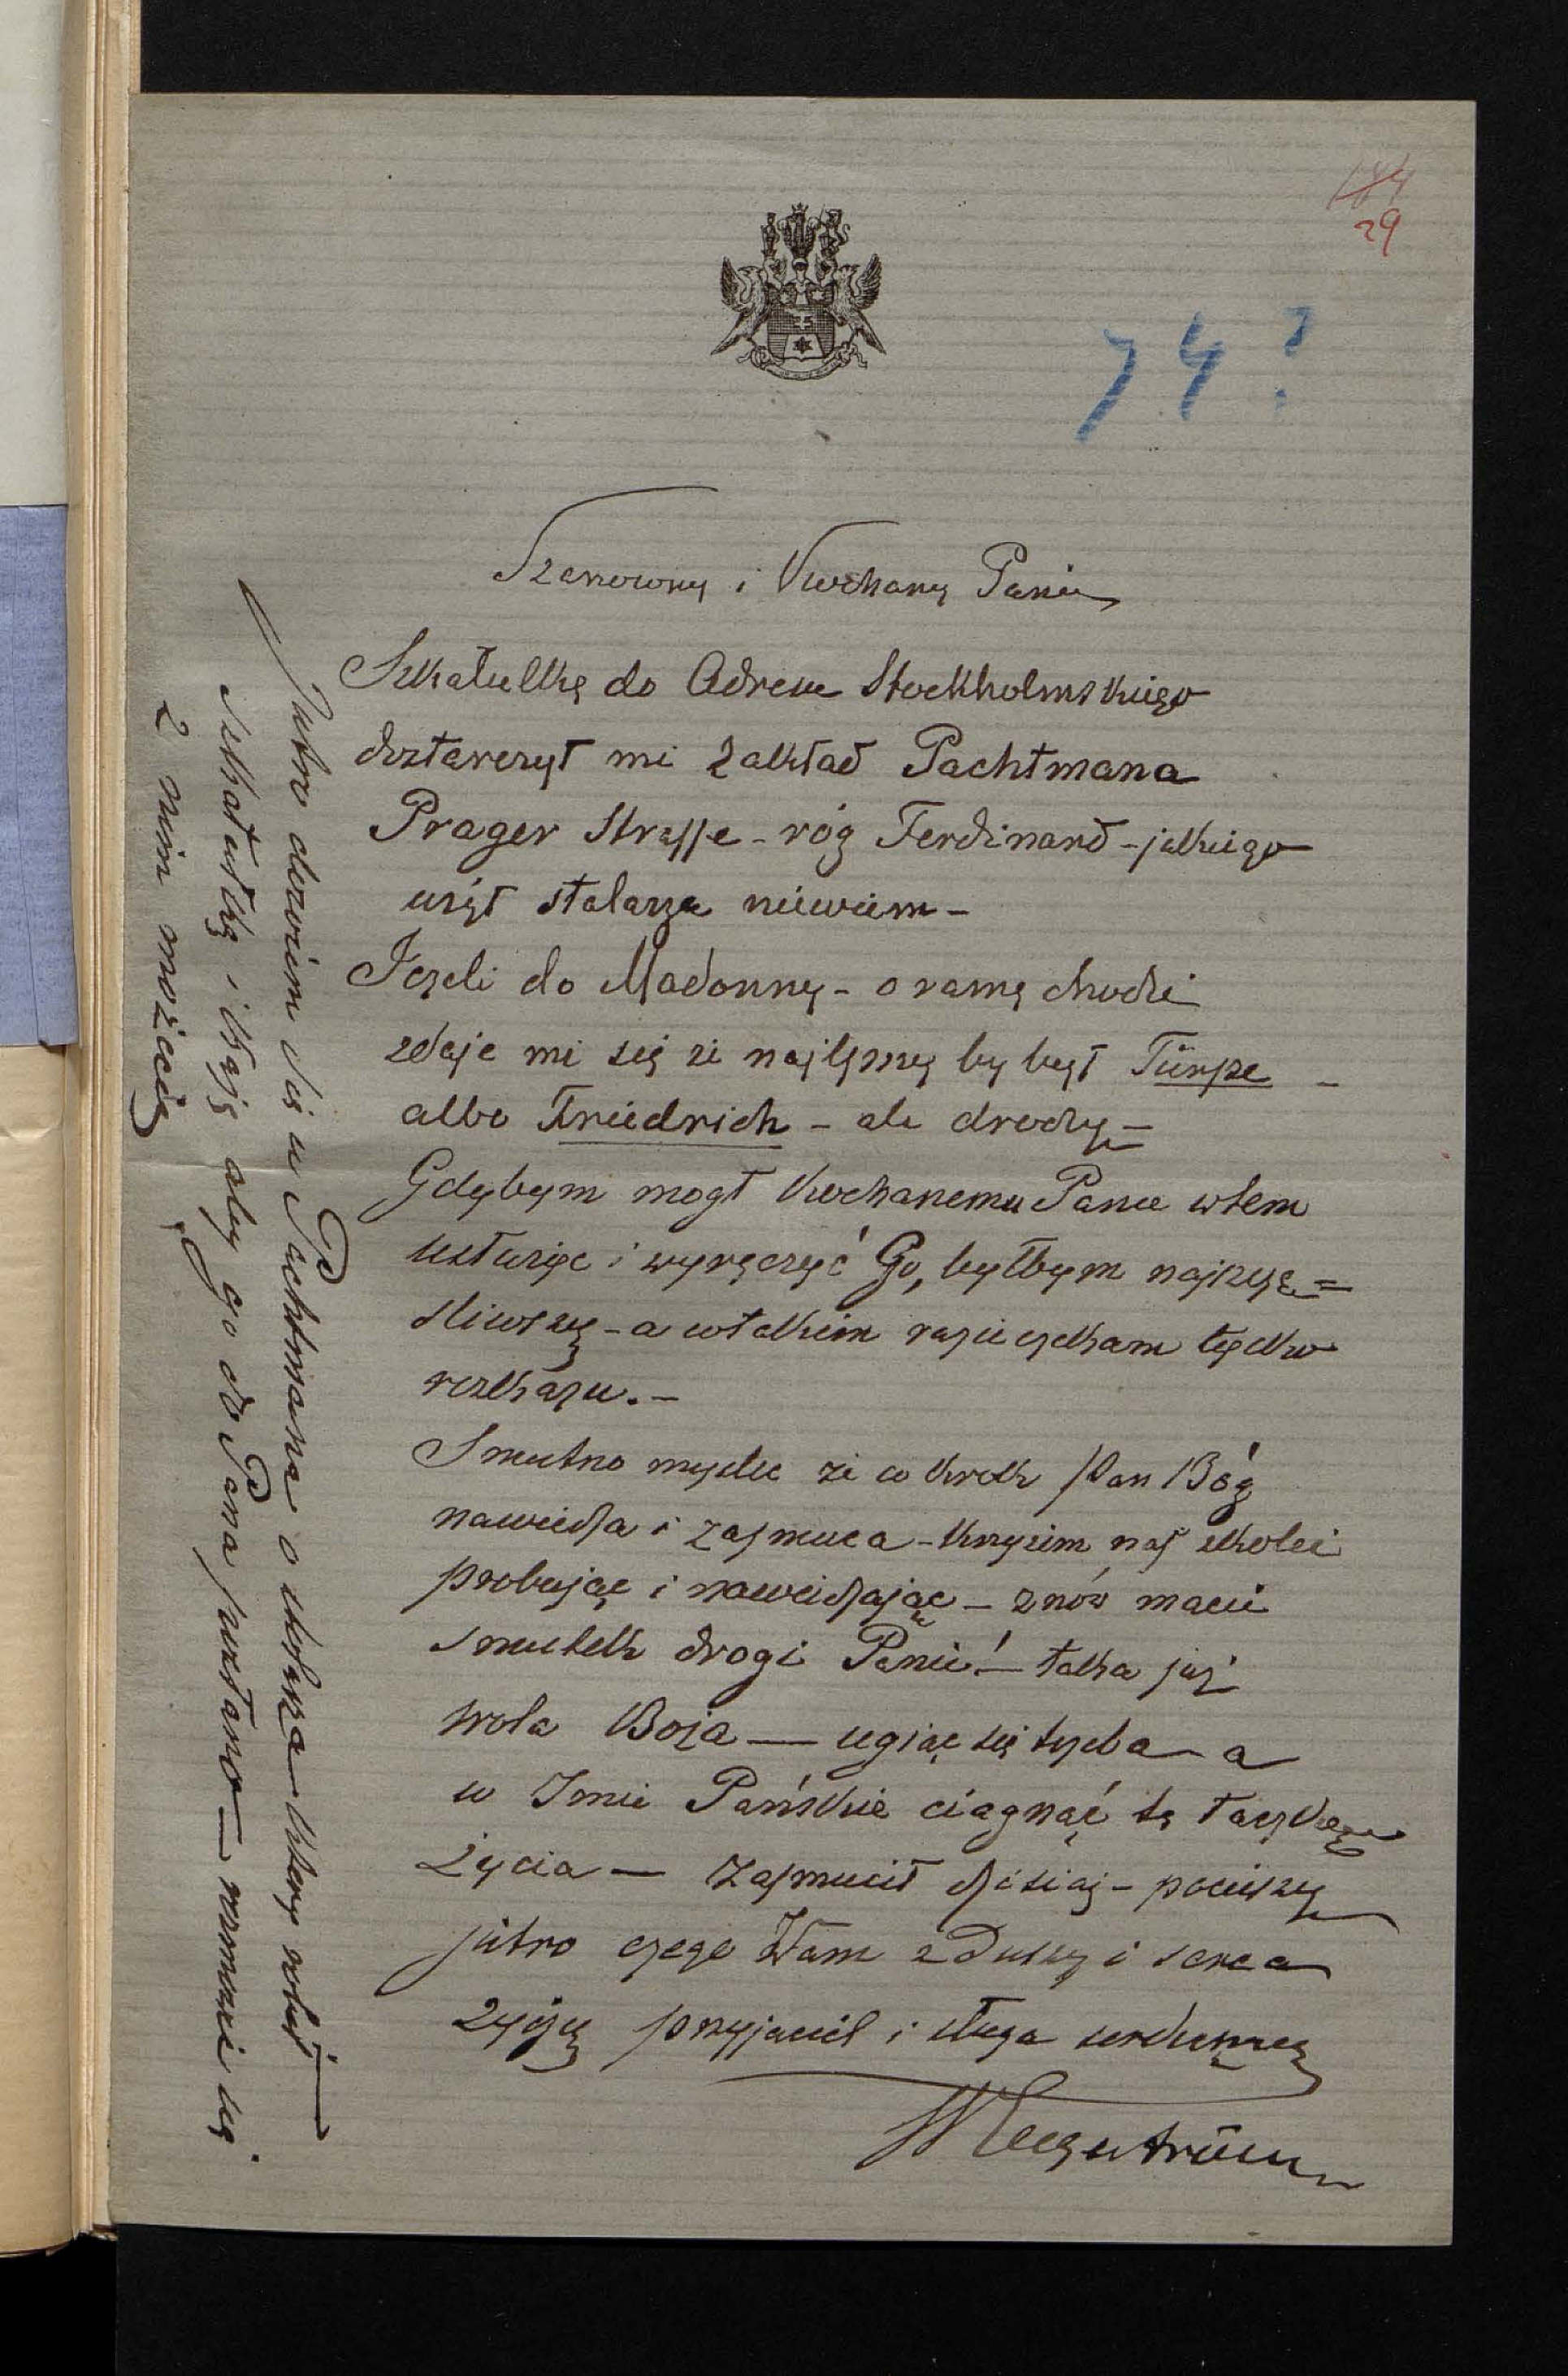 184
29
74?
Szanowny i Kochany Panie
Szkatułkę do Adresu Stockholmskiego
dostarczył mi Zakład Pachtmana
Prager Strasse - róg Ferdinand - jakiego
użył stolarza niewiem -
Jeżeli do Madonny - o ramę chodzi
zdaje mi się że najlepszy by był Türpe -
albo Friedrich - ale drodzy -
Gdybym mogł Kochanemu Panu wtem
usłużyc i wyręczyć Go, byłbym najszczę=
śliwszy - a wtakim razie czekam tylko
rozkazu. -
Smutno myslec że co krok Pan Bóg
nawiedza i zasmuca - Krzyżem nas zkolei
probując i nawiedzając - znów macie
smutek drogi Panie! - taka już
wola Boża — ugiąc się trzeba - a
w Imie Pańskie ciągnąć tę taczkę
życia — Zasmucił dzisiaj - pocieszy
jutro czego Wam z Duszy i serca
życzę przyjaciel i sługa serdeczny
W Engeström
Jutro dowiem się u Pachtmana o stolarza - który robił
szkatułkę i każę aby go do Pana posłano — rozmówi się
z nim możecie